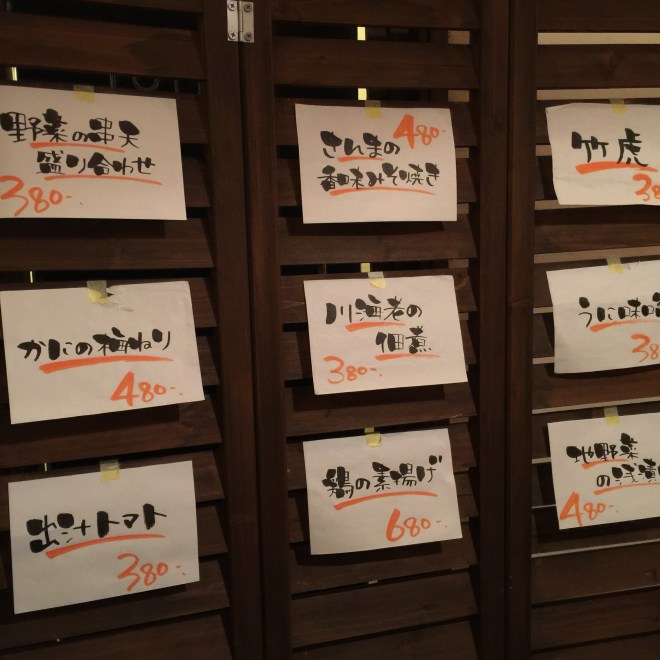 野菜の串天
盛り合わせ
380-.
かにの梅ねり
480-.
出汁トマト
380-.
480-
さんまの
香味みそ焼き
川海老の
佃煮
380-.
鶏の素揚げ
680-.
竹虎
38
うに味噌
38
地野菜
の浅漬
480-.